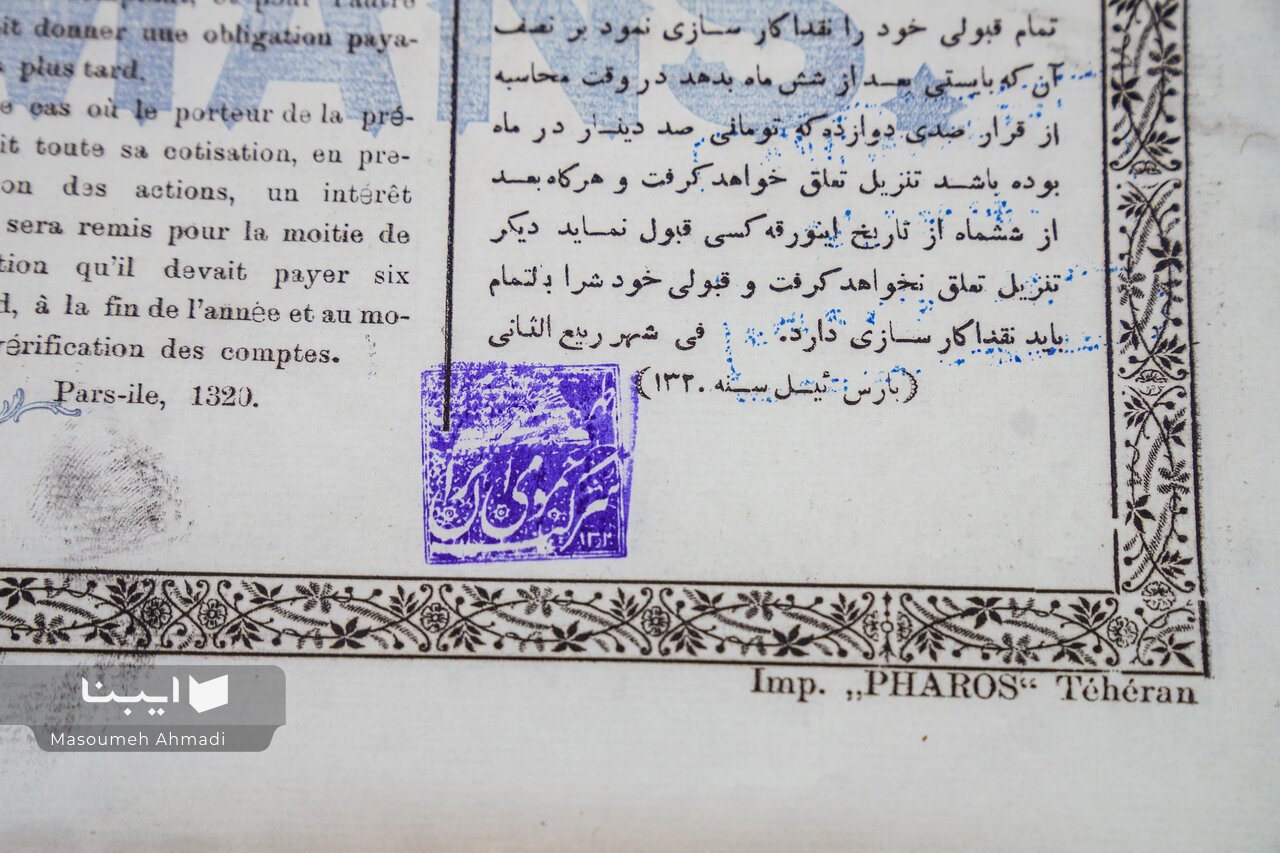 et pour l'autre
it donner une obligation paya-
plus tard.
e cas où le porteur de la pré-
it toute sa cotisation, en pre-
on des actions, un intérêt
sera remis pour la moitie de
tion qu'il devait payer six
d, â la fin de l'année et au mo-
vérification des comptes.
Pars-ile, 1320.
MANS
تمام قبولی خود را نقداً کار سازی نمود بر نصف
آن که بایستی بعد از شش ماه بدهد در وقت محاسبه
از قرار صدی دوازده که تومانی صد دینار در ماه
بوده باشد تنزیل تعلق خواهد گرفت و هرکاه بعد
از ششماه از تاریخ اینورقه کسی قبول نماید دیکر
تنزیل تعلق نخواهد گرفت و قبولی خود شرا بالتمام
باید نقداً کار سازی دارد. فی شهر ربیع الثانی
(بارس ئیل سنه ۱۳۲۰)
شرکت عمومی ایران
Imp. „PHAROS“ Téhéran
ایبنا
Masoumeh Ahmadi